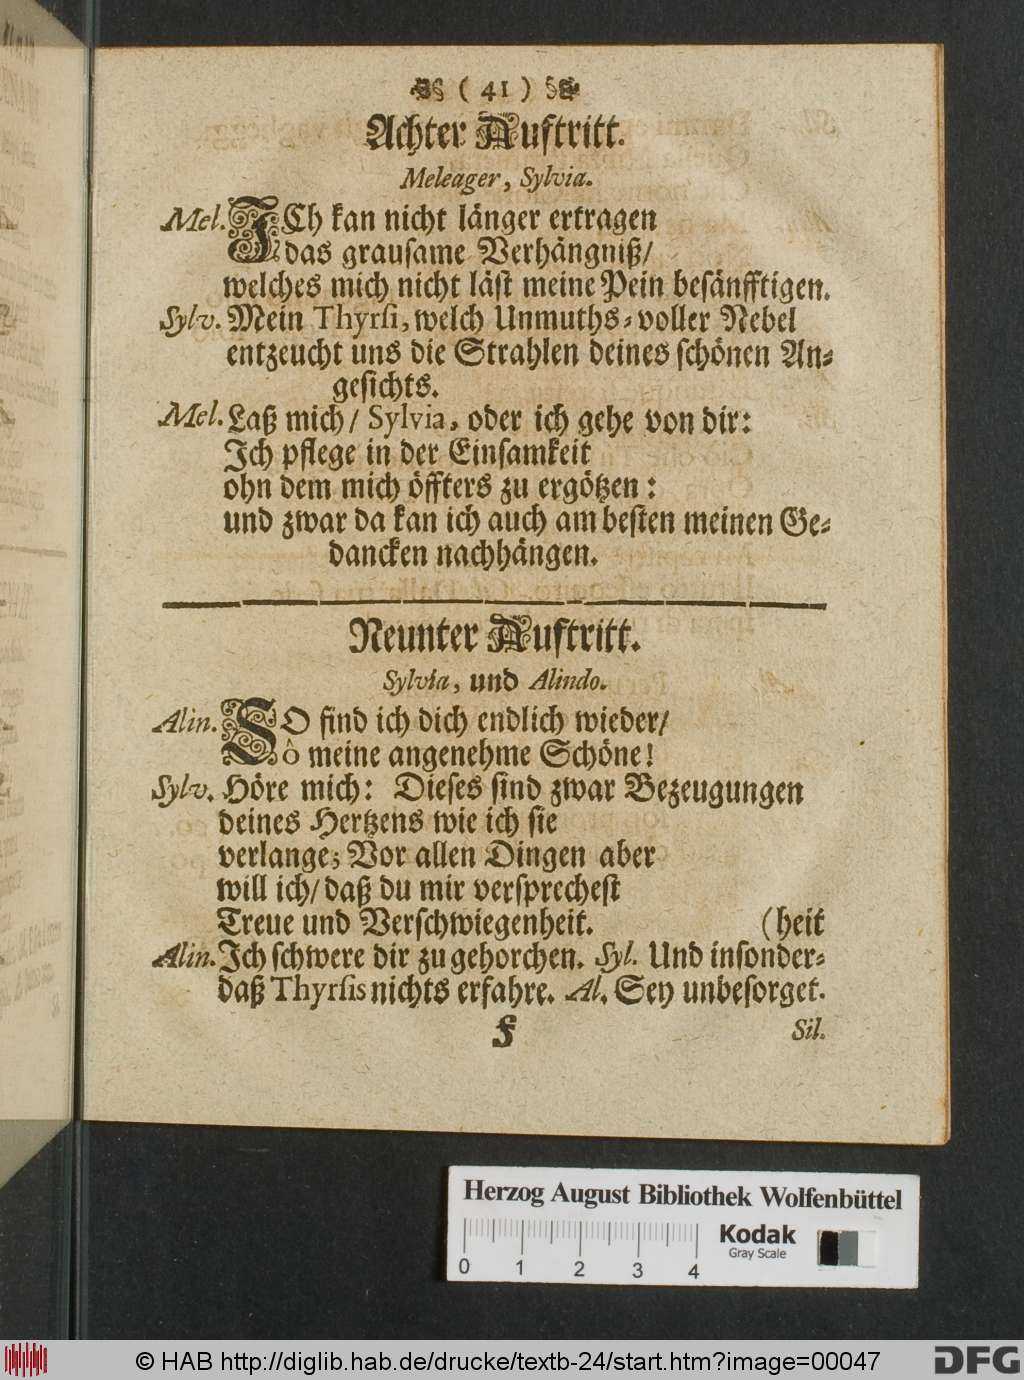 ( 41 )
Achter Auftritt.
Meleager, Sylvia.
Mel. ICh kan nicht länger ertragen
das grausame Verhängniß/
welches mich nicht läst meine Pein besänfftigen.
Sylv. Mein Thyrsi, welch Unmuths-voller Nebel
entzeucht uns die Strahlen deines schönen An-
gesichts.
Mel. Laß mich/ Sylvia, oder ich gehe von dir:
Ich pflege in der Einsamkeit
ohn dem mich öffters zu ergötzen:
und zwar da kan ich auch am besten meinen Ge-
dancken nachhängen.
Neunter Auftritt.
Sylvia, und Alindo.
Alin. SO find ich dich endlich wieder/
ô meine angenehme Schöne!
Sylv. Höre mich: Dieses sind zwar Bezeugungen
deines Hertzens wie ich sie
verlange; Vor allen Dingen aber
will ich/ daß du mir versprechest
Treue und Verschwiegenheit. (heit
Alin. Ich schwere dir zu gehorchen. Syl. Und insonder-
daß Thyrsis nichts erfahre. Al. Sey unbesorget.
F Sil.
Herzog August Bibliothek Wolfenbüttel
Kodak
Gray Scale
0 1 2 3 4
© HAB http://diglib.hab.de/drucke/textb-24/start.htm?image=00047
DFG